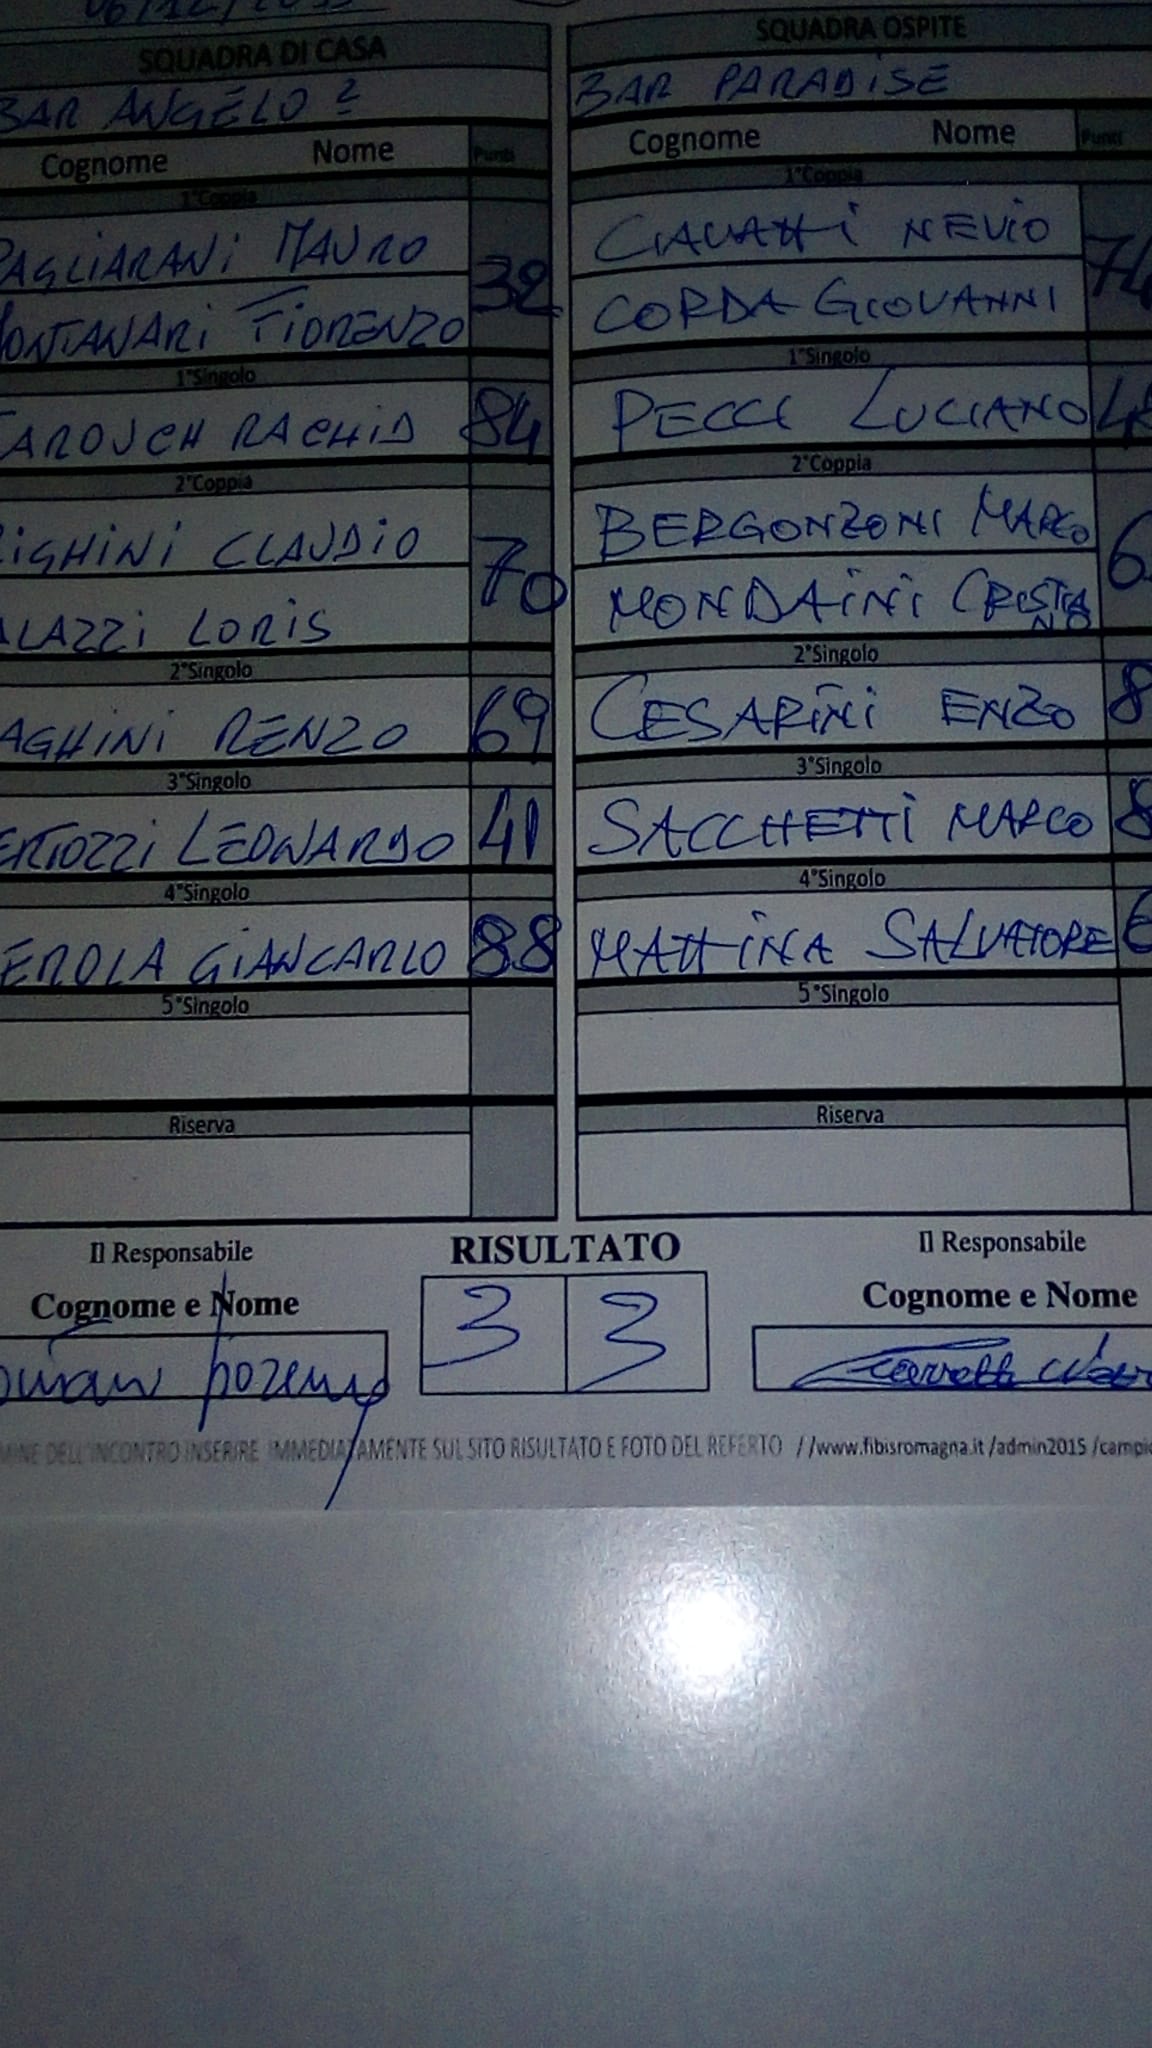 SQUADRA DI CASA
BAR ANGELO 2
Cognome Nome Punti
1°Coppia
PAGLIARANi MAURO
32
MONTANARi FiORENZO
1°Singolo
TAROUCH RACHiD 84
2°Coppia
RiGHiNi CLAUDiO
70
LORiS
2°Singolo
RENZO 69
3°Singolo
LEONARDO 41
4°Singolo
GiANCARLO 88
5°Singolo
Riserva
SQUADRA OSPITE
BAR PARADiSE
Cognome Nome Punti
1°Coppia
CiAVATTi NEViO
CORDA GiOVANNI
1°Singolo
PECCi LUCIANO
2°Coppia
BERGONZONI MARCO
MONDAiNi CRiSTiANO
2°Singolo
CESARiNi ENZO
3°Singolo
SACCHETTi MARCO
4°Singolo
MATTiNA SALVATORE
5°Singolo
Riserva
Il Responsabile
Cognome e Nome
RISULTATO
3 3
Il Responsabile
Cognome e Nome
DELL'INCONTRO INSERIRE IMMEDIATAMENTE SUL SITO RISULTATO E FOTO DEL REFERTO //www.fibisromagna.it /admin2015